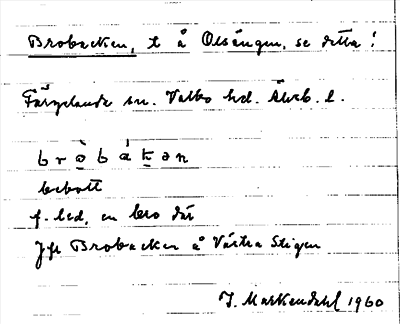 Brobacken, t å Olsängen, se detta!
Färgelanda sn. Valbo hd. Älvsb. l.
bròbák̲ən
bebott
f. led, en bro där
Jfr Brobacken å Västra Stigen
J. Markendahl 1960